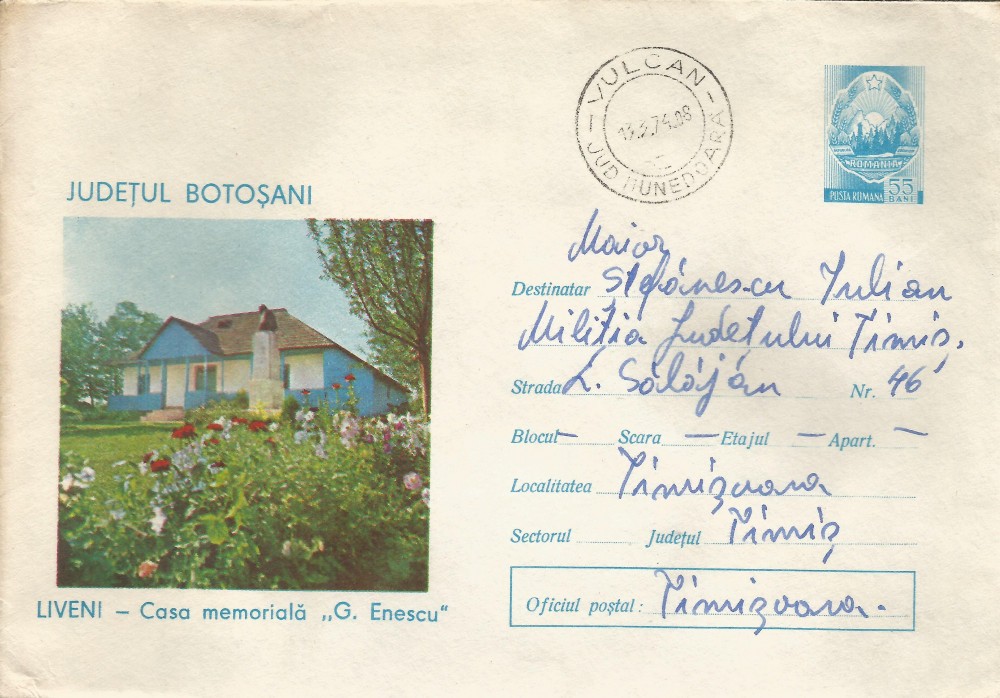 VULCAN
13.3.74.08
JUD HUNEDOARA
ROMANIA
POSTA ROMANA
55
BANI
JUDEȚUL BOTOȘANI
LIVENI – Casa memorială „G. Enescu"
Maior
Destinatar Stefănescu Iulian
Miliția Județului Timiș,
Strada L. Sălăján Nr. 46
Blocul – Scara – Etajul – Apart. –
Localitatea Timișoara
Sectorul Județul Timiș
Oficiul poștal: Timișoara.